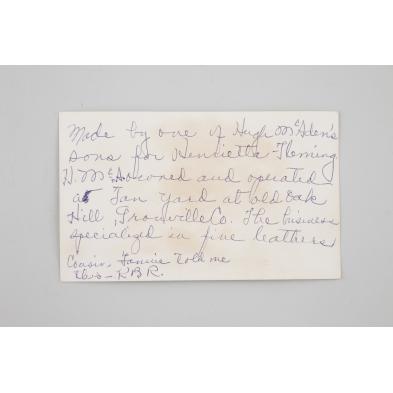 Made by one of Hugh McAden's
sons for Henrietta Fleming.
H. McA owned and operated
a Tan Yard at old Oak
Hill, Granville Co. The business
specialized in fine leathers
Cousin Fannie told me
this - RBR.